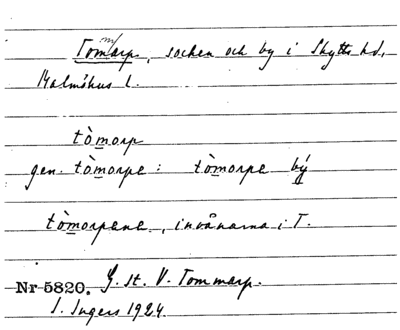 Tommarp, socken och by i Skytts hd,
Malmöhus l.
tòmarp
gen. tòmarpe: tòmarpe bý
tòmarpena, invånarna i T.
Nr 5820. G. st. V. Tommarp.
I. Ingers 1924